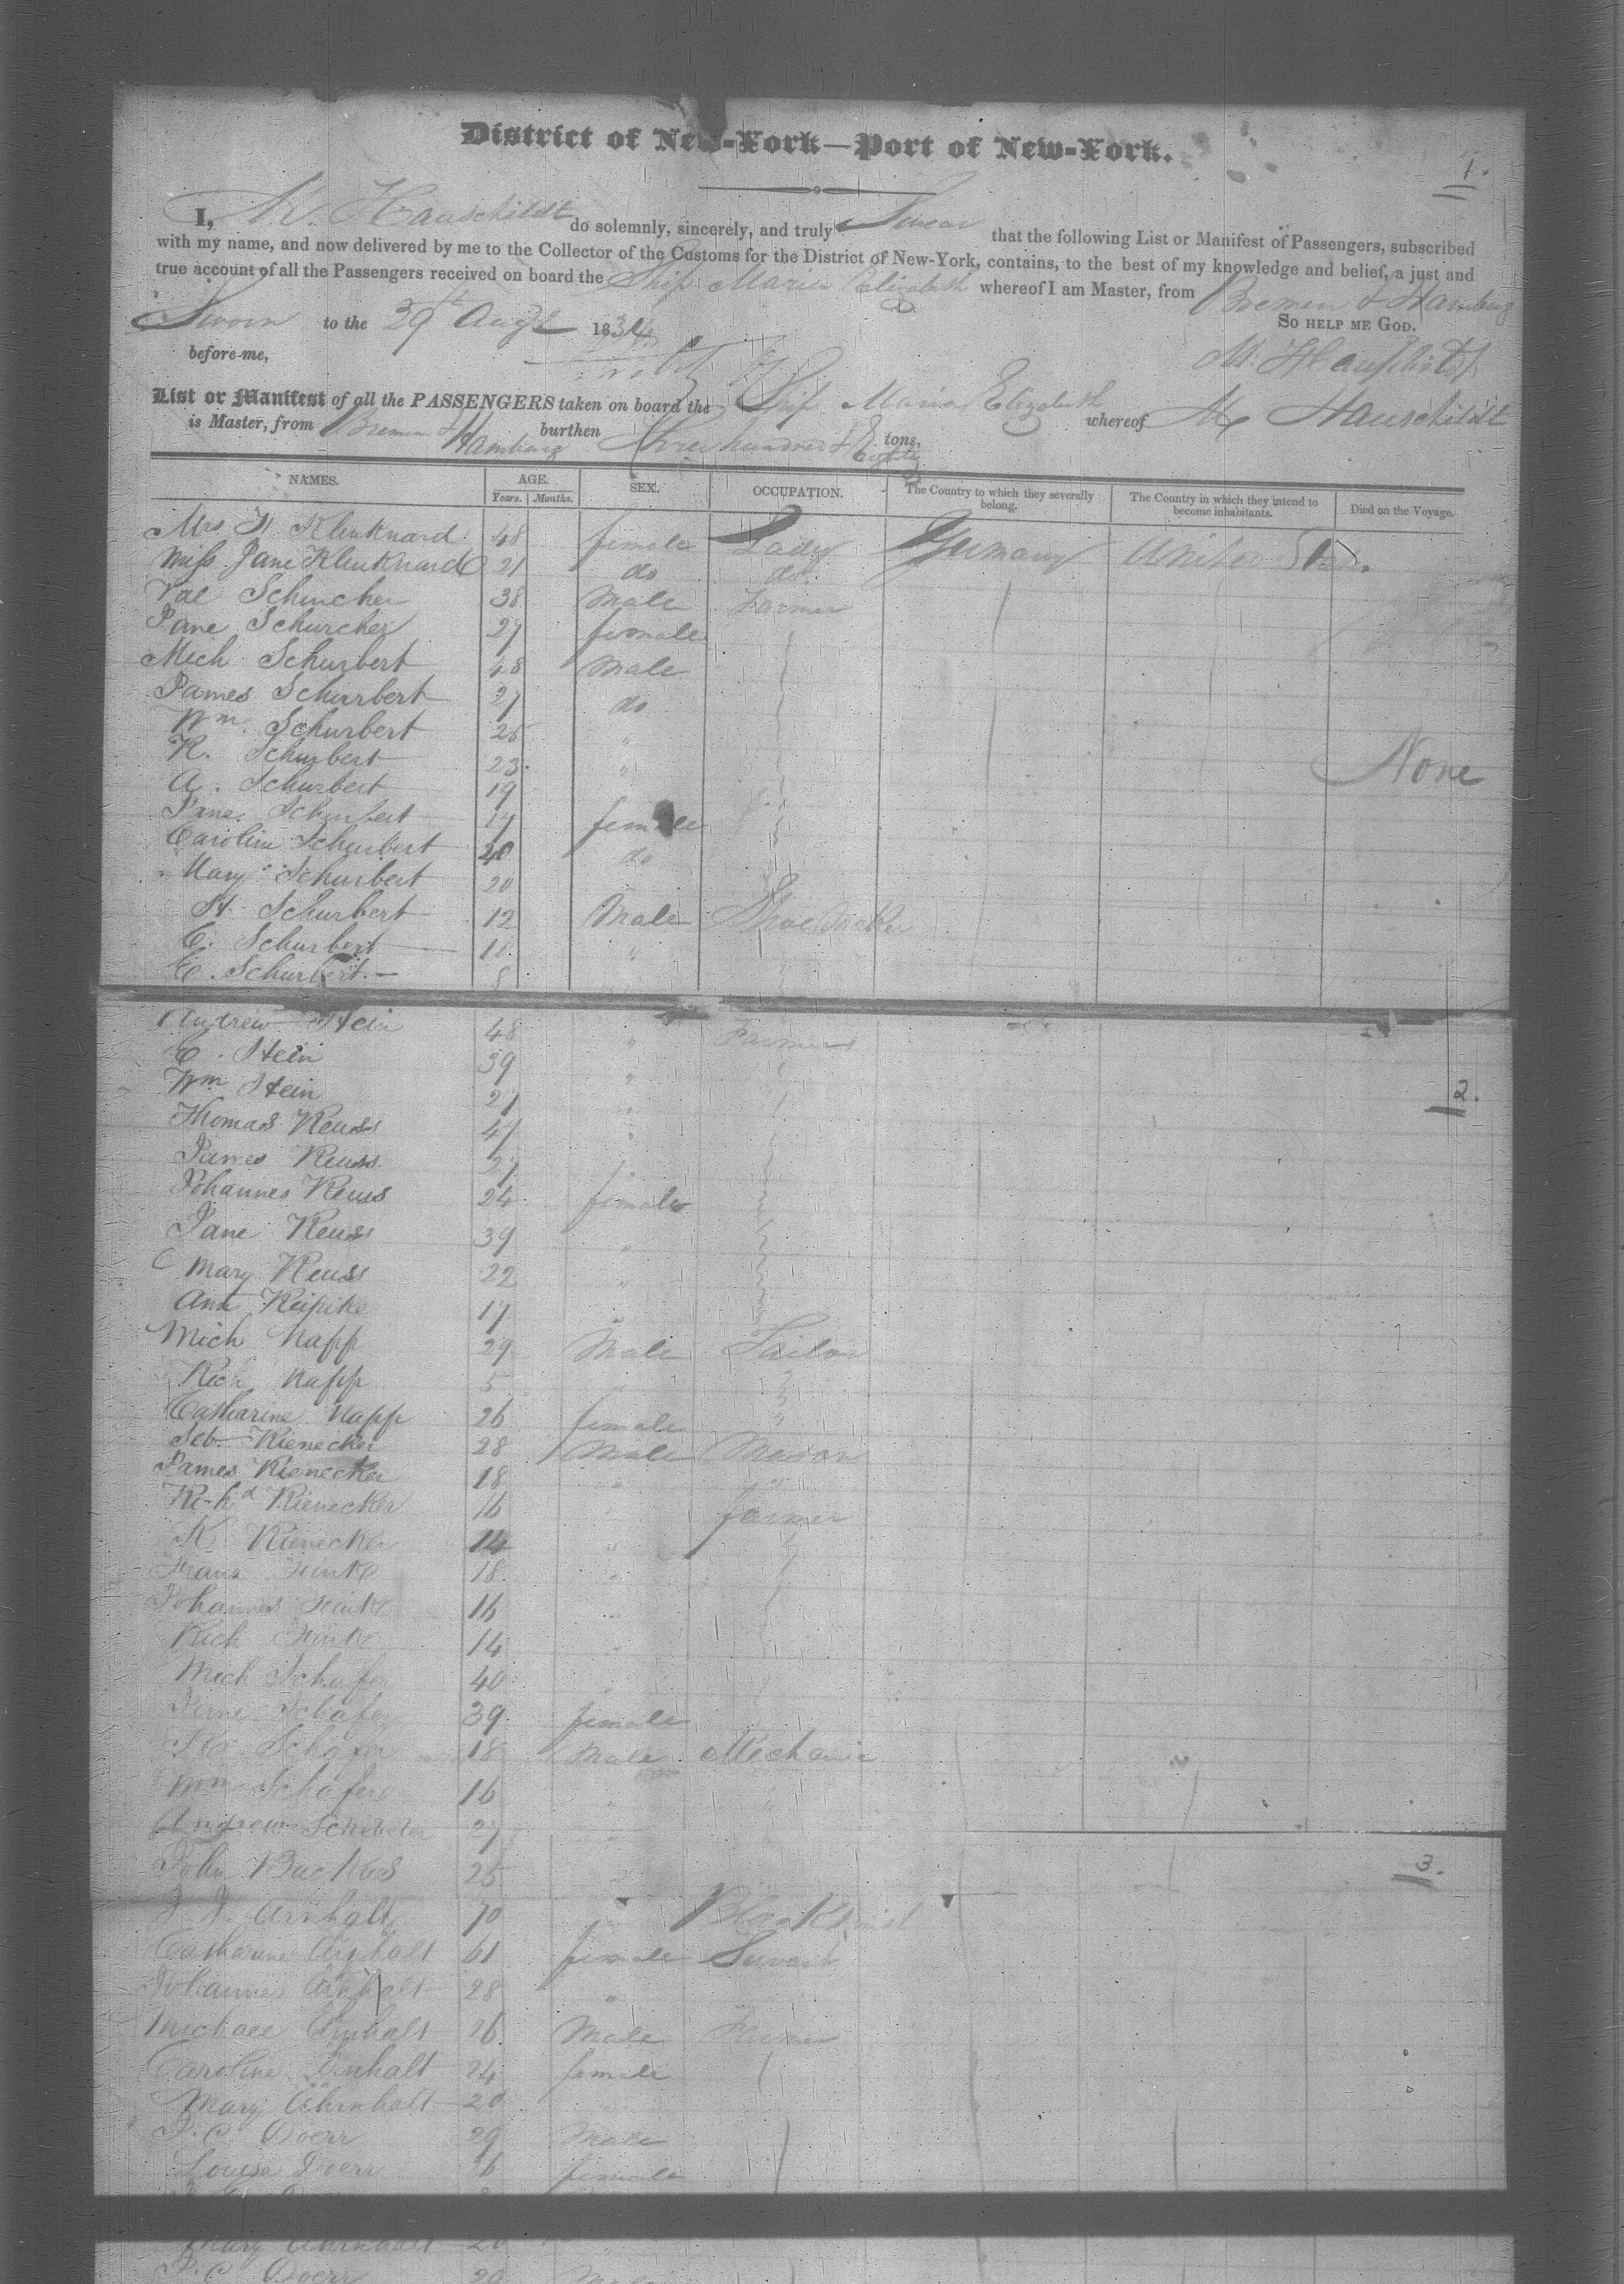 District of New-York—Port of New-York.
1.
I, M. Hauschildt do solemnly, sincerely, and truly Swear that the following List or Manifest of Passengers, subscribed
with my name, and now delivered by me to the Collector of the Customs for the District of New-York, contains, to the best of my knowledge and belief, a just and
true account of all the Passengers received on board the Ship Maria Elizabeth whereof I am Master, from Bremen & Hamburg
Sworn to the 29th Augt 1834
So help me God.
before me,
M. Hauschildt
List or Manifest of all the PASSENGERS taken on board the Ship Maria Elizabeth whereof M Hauschildt
is Master, from Bremen & Hamburg burthen three hundred & Eighty tons,
NAMES. AGE. SEX. OCCUPATION. The Country to which they severally belong. The Country in which they intend to become inhabitants. Died on the Voyage.
Years. Months.
Mrs H Klinknard 48 female Lady Germany United States.
Miss Jane Klinknard 21 do do.
Val Schurcher 38 Male Farmer
Jane Schurcher 27 female
Mich Schurbert 48 Male
James Schurrbert 27 do
Wm. Schurbert 25 "
K. Schurbert 23 "
None
A. Schurbert 19
Jane Schurbert 17 female
Caroline Schurbert 20 do
Mary Schurbert 20
H. Schurbert 12 Male Shoe Maker
C. Schurbert 10 "
E. Schurbert 8
Andrew Stein 48 " Farmers
C. Stein 39 "
Wm Stein 21 "
2.
Thomas Reuss 47 "
James Reuss 27
Johannes Reuss 24 female
Jane Reuss 39 "
Mary Reuss 22 "
Ann 17 "
Mich Napp 29 Male Tailor
Rich Napp 5
Catharine Napp 26 female "
Seb. Rienecker 28 Male Mason
James Rienecker 18 " "
Richd Rienecker 16 farmer
K. Rienecker 14 "
Franz 18 "
Johannes 16
Rich 14
Mich Schafer 40
Schafer 39 female
Schafer 18 Male Mechanic
Wm Schafer 16
Andrew 27
John Backes 25
3.
J. J. Arnhalt 70 " Blacksmith
Catharine Arnhalt 61 female Servant
Johannes Arnhalt 28 "
Michael Arnhalt 26 Male Farmer
Caroline Arnhalt 24 female
Mary Ahrnhalt 20
J. C. Doerr 29 Male
Louisa Doerr 26 female
Mary Ahrnhalt 20
J. C. Doerr 29 Male